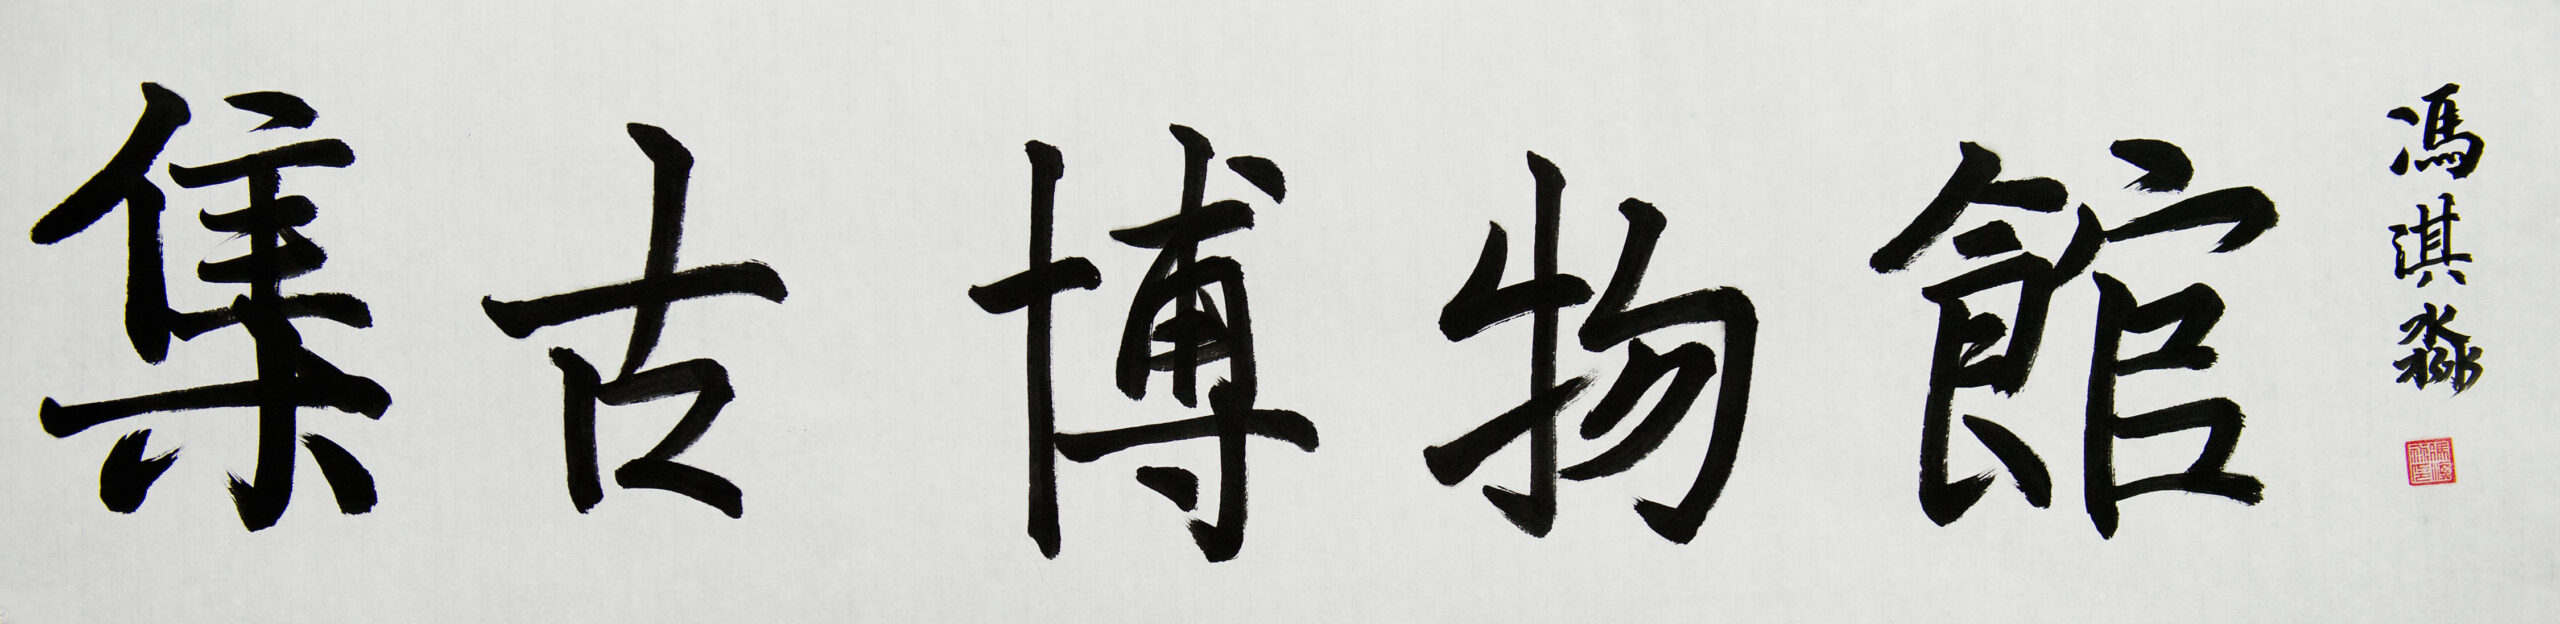 集古博物館
馮淇淼